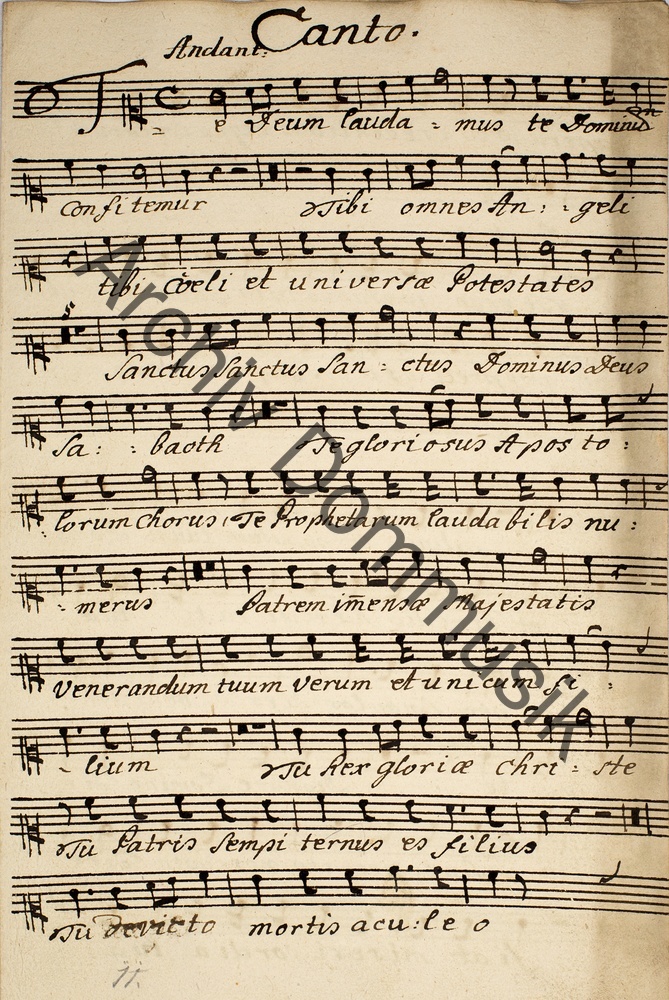 Canto.
Andant:
Te Deum lauda - mus te Dominū
Confitemur Tibi omnes An: - geli
tibi Cœli et universæ Potestates
Sanctus Sanctus San: ctus Dominus Deus
Sa: : baoth Te gloriosus Apos to:
lorum Chorus, Te Prophetarum laudabilis nu:
: merus Patrem im̄ensæ Majestatis
Venerandum tuum verum et unicum fi :
- lium Tu Rex gloriæ Chri : ste
Tu Patris Sempi ternus es filius
Tu devicto mortis acu:le o
11.
Archiv Dommusik